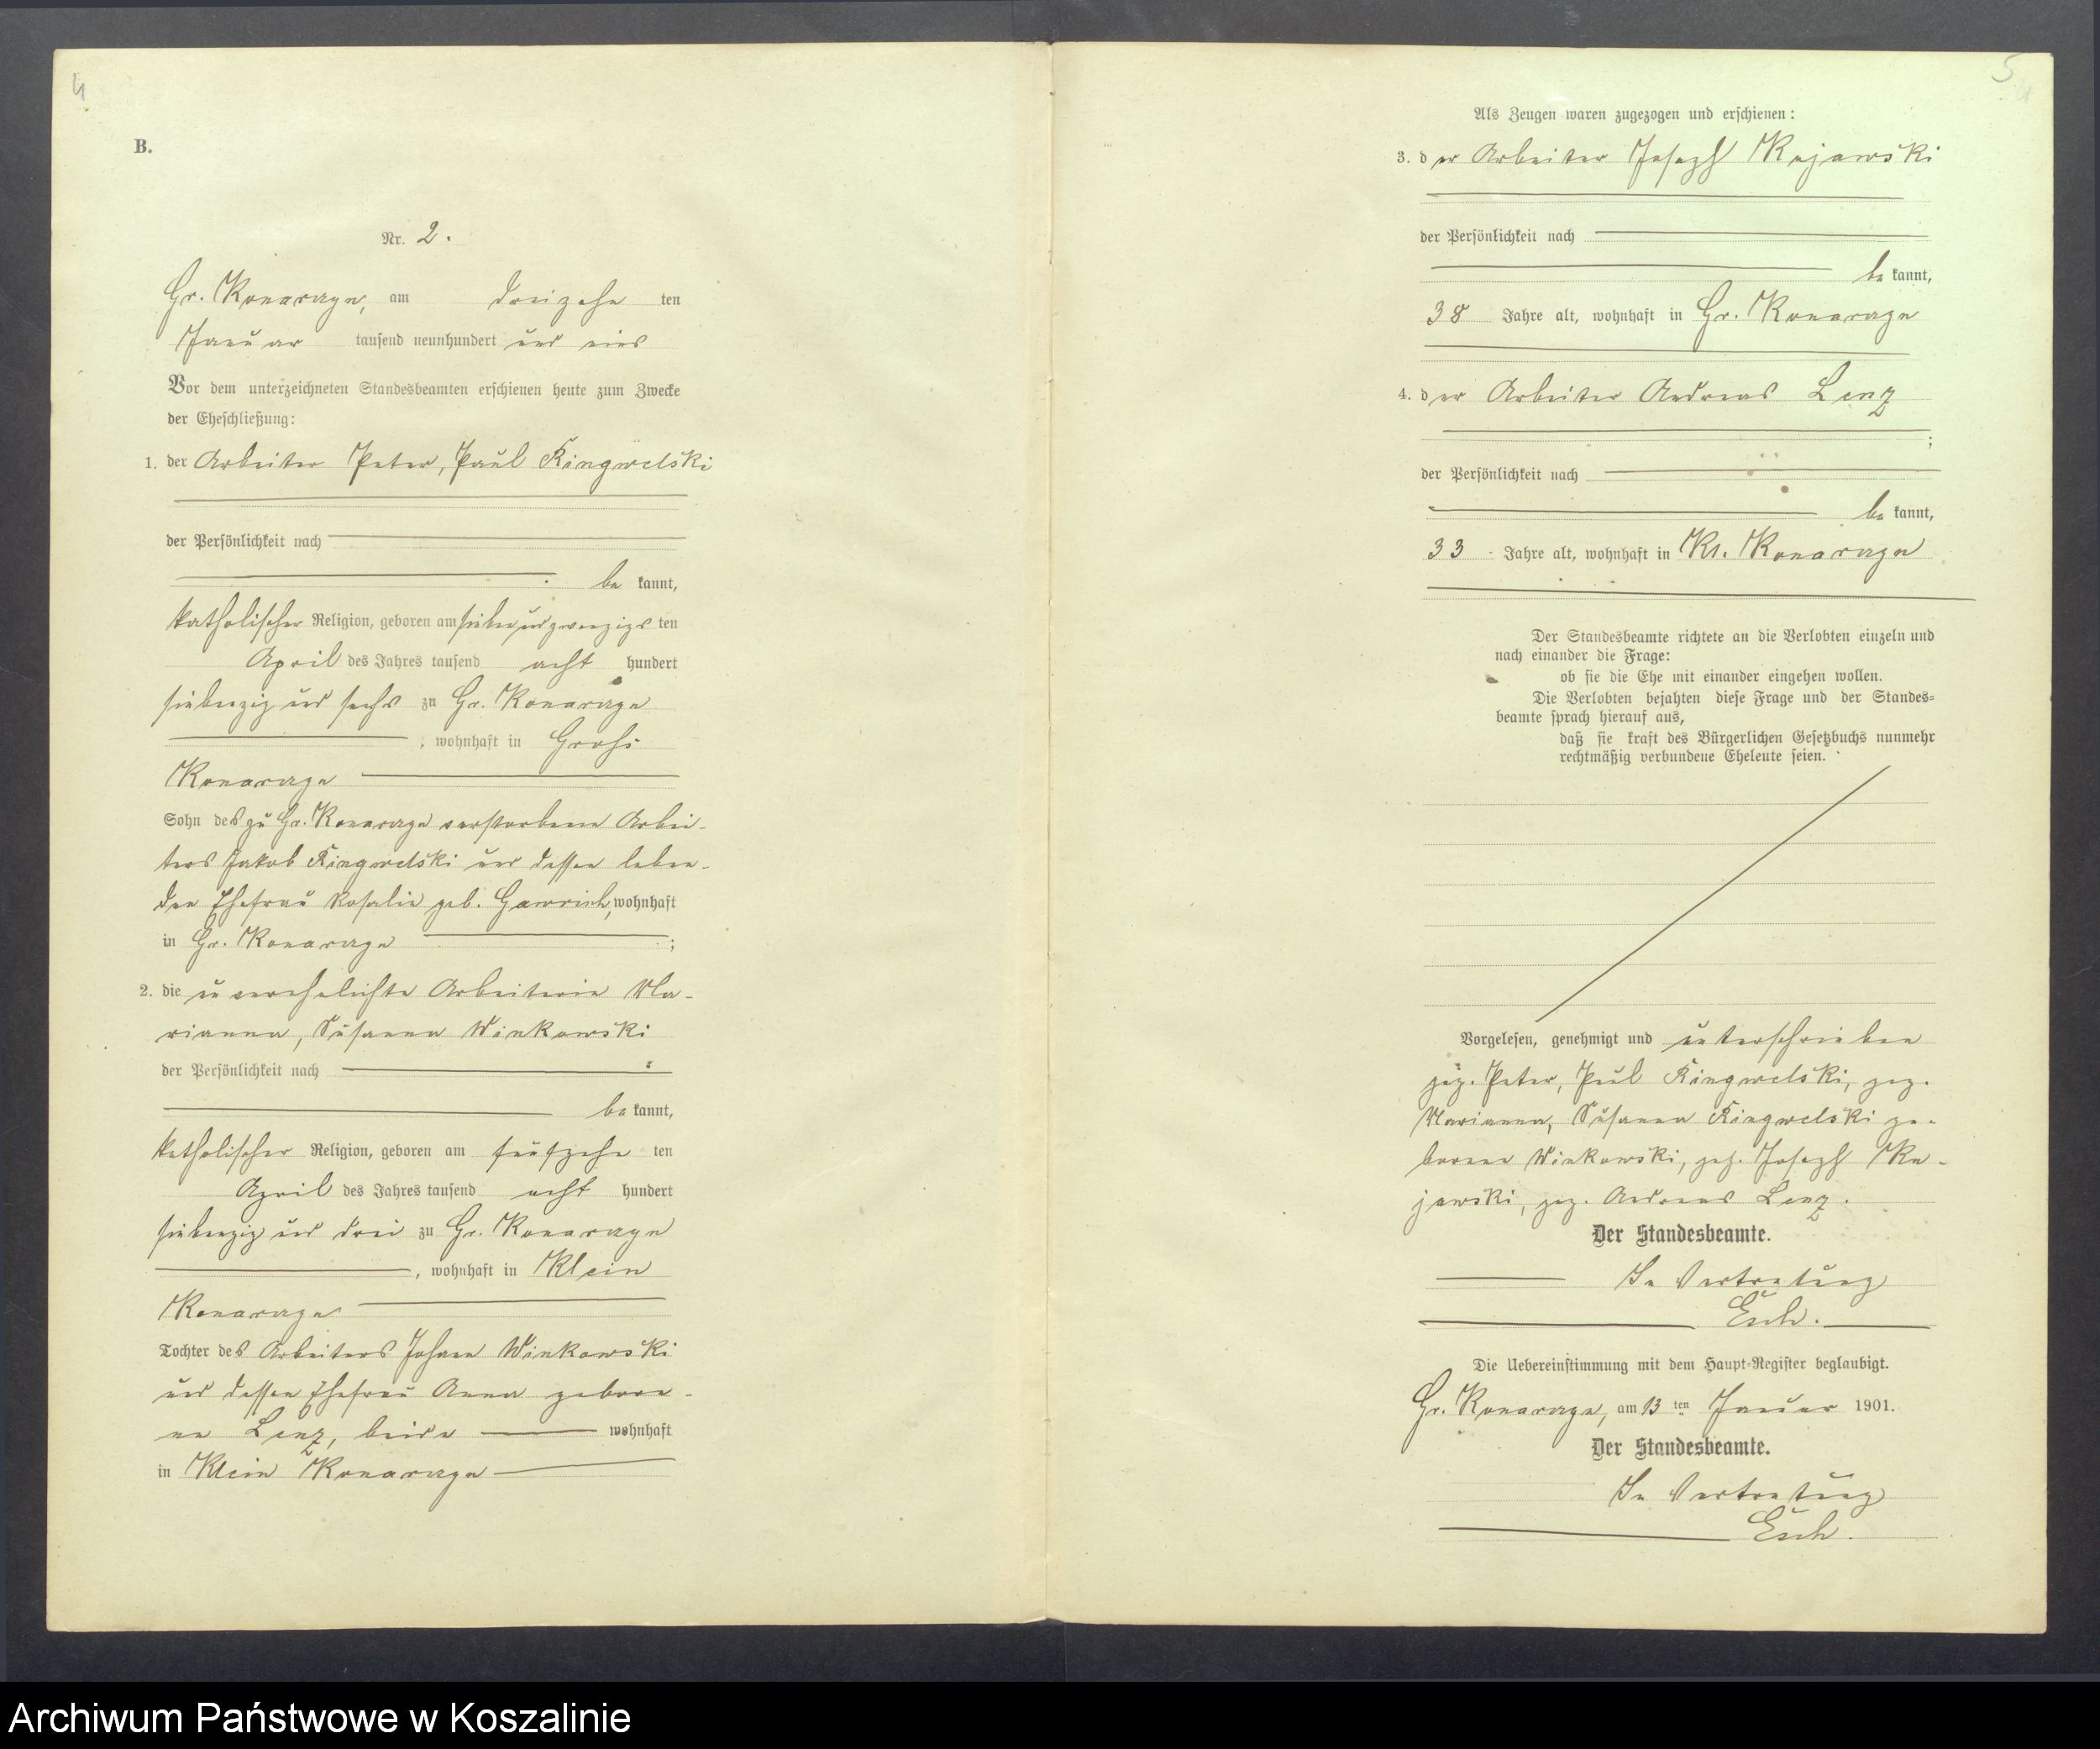 4
B.
Nr. 2.
Gr. Konarczyn, am dreizehn ten
Januar tausend neunhundert und eins
Vor dem unterzeichneten Standesbeamten erschienen heute zum Zwecke
der Eheschließung:
1. der Arbeiter Peter, Paul Ringwelski
der Persönlichkeit nach
be kannt,
katholischer Religion, geboren am siebenundzwanzigs ten
April des Jahres tausend acht hundert
siebenzig und sechs zu Gr. Konarczyn
, wohnhaft in Groß
Konarczyn
Sohn des zu Gr. Konarczyn verstorbenen Arbei-
ters Jakob Ringwelski und dessen leben-
den Ehefrau Rosalie geb. wohnhaft
in Gr. Konarczyn ;
2. die unverehelichte Arbeiterin Ma-
rianna, Susanna Winkowski
der Persönlichkeit nach
be kannt,
katholischer Religion, geboren am fünfzehn ten
April des Jahres tausend acht hundert
siebenzig und drei zu Gr. Konarczyn
, wohnhaft in Klein
Konarczyn
Tochter des Arbeiters Johann Winkowski
und dessen Ehefrau Anna gebore-
ne Lenz, beide wohnhaft
in Klein Konarczyn
5
Als Zeugen waren zugezogen und erschienen:
3. der Arbeiter Joseph Kujawski
der Persönlichkeit nach
be kannt,
38 Jahre alt, wohnhaft in Gr. Konarczyn
4. der Arbeiter Andreas Lenz
;
der Persönlichkeit nach
be kannt,
33 Jahre alt, wohnhaft in Kl. Konarczyn
Der Standesbeamte richtete an die Verlobten einzeln und
nach einander die Frage:
ob sie die Ehe mit einander eingehen wollen.
Die Verlobten bejahten diese Frage und der Standes-
beamte sprach hierauf aus,
daß sie kraft des Bürgerlichen Gesetzbuchs nunmehr
rechtmäßig verbundene Eheleute seien.
Vorgelesen, genehmigt und unterschrieben
gez. Peter, Paul Ringwelski, gez.
Marianna, Susanna Ringwelski ge-
borene Winkowski, gez. Joseph Ku-
jawski, gez. Andreas Lenz.
Der Standesbeamte.
In Vertretung
Esch.
Die Uebereinstimmung mit dem Haupt-Register beglaubigt.
Gr. Konarczyn, am 13 ten Januar 1901.
Der Standesbeamte.
In Vertretung
Esch.
Archiwum Państwowe w Koszalinie